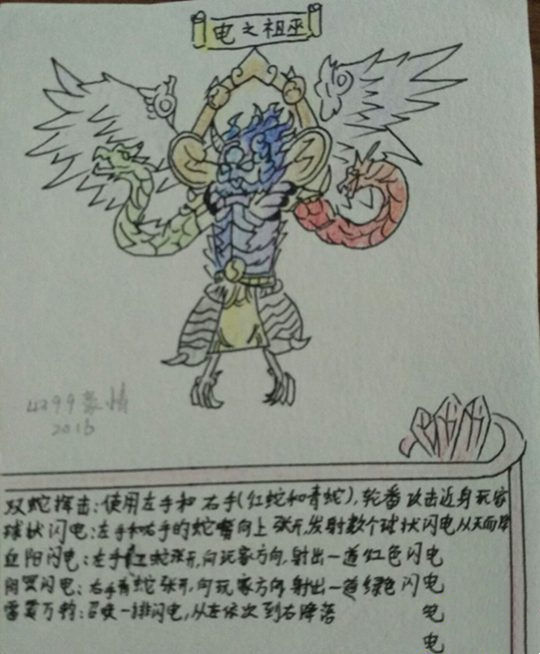 电之祖巫
4399豪情
2013
双蛇挥击:使用左手和右手(红蛇和青蛇),轮番攻击近身玩家
球状闪电:左手和右手的蛇嘴向上张开,发射数个球状闪电从天而降
血阳闪电:左手红蛇张开,向玩家方向,射出一道红色闪电
阴冥闪电:右手青蛇张开,向玩家方向射出一道绿色闪电
雷霆万钧:召唤一排闪电,从左依次到右降落
电
电